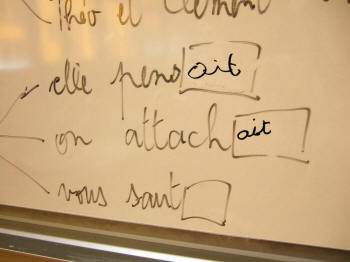 Théo et Clément
elle pensait
on attachait
vous saut